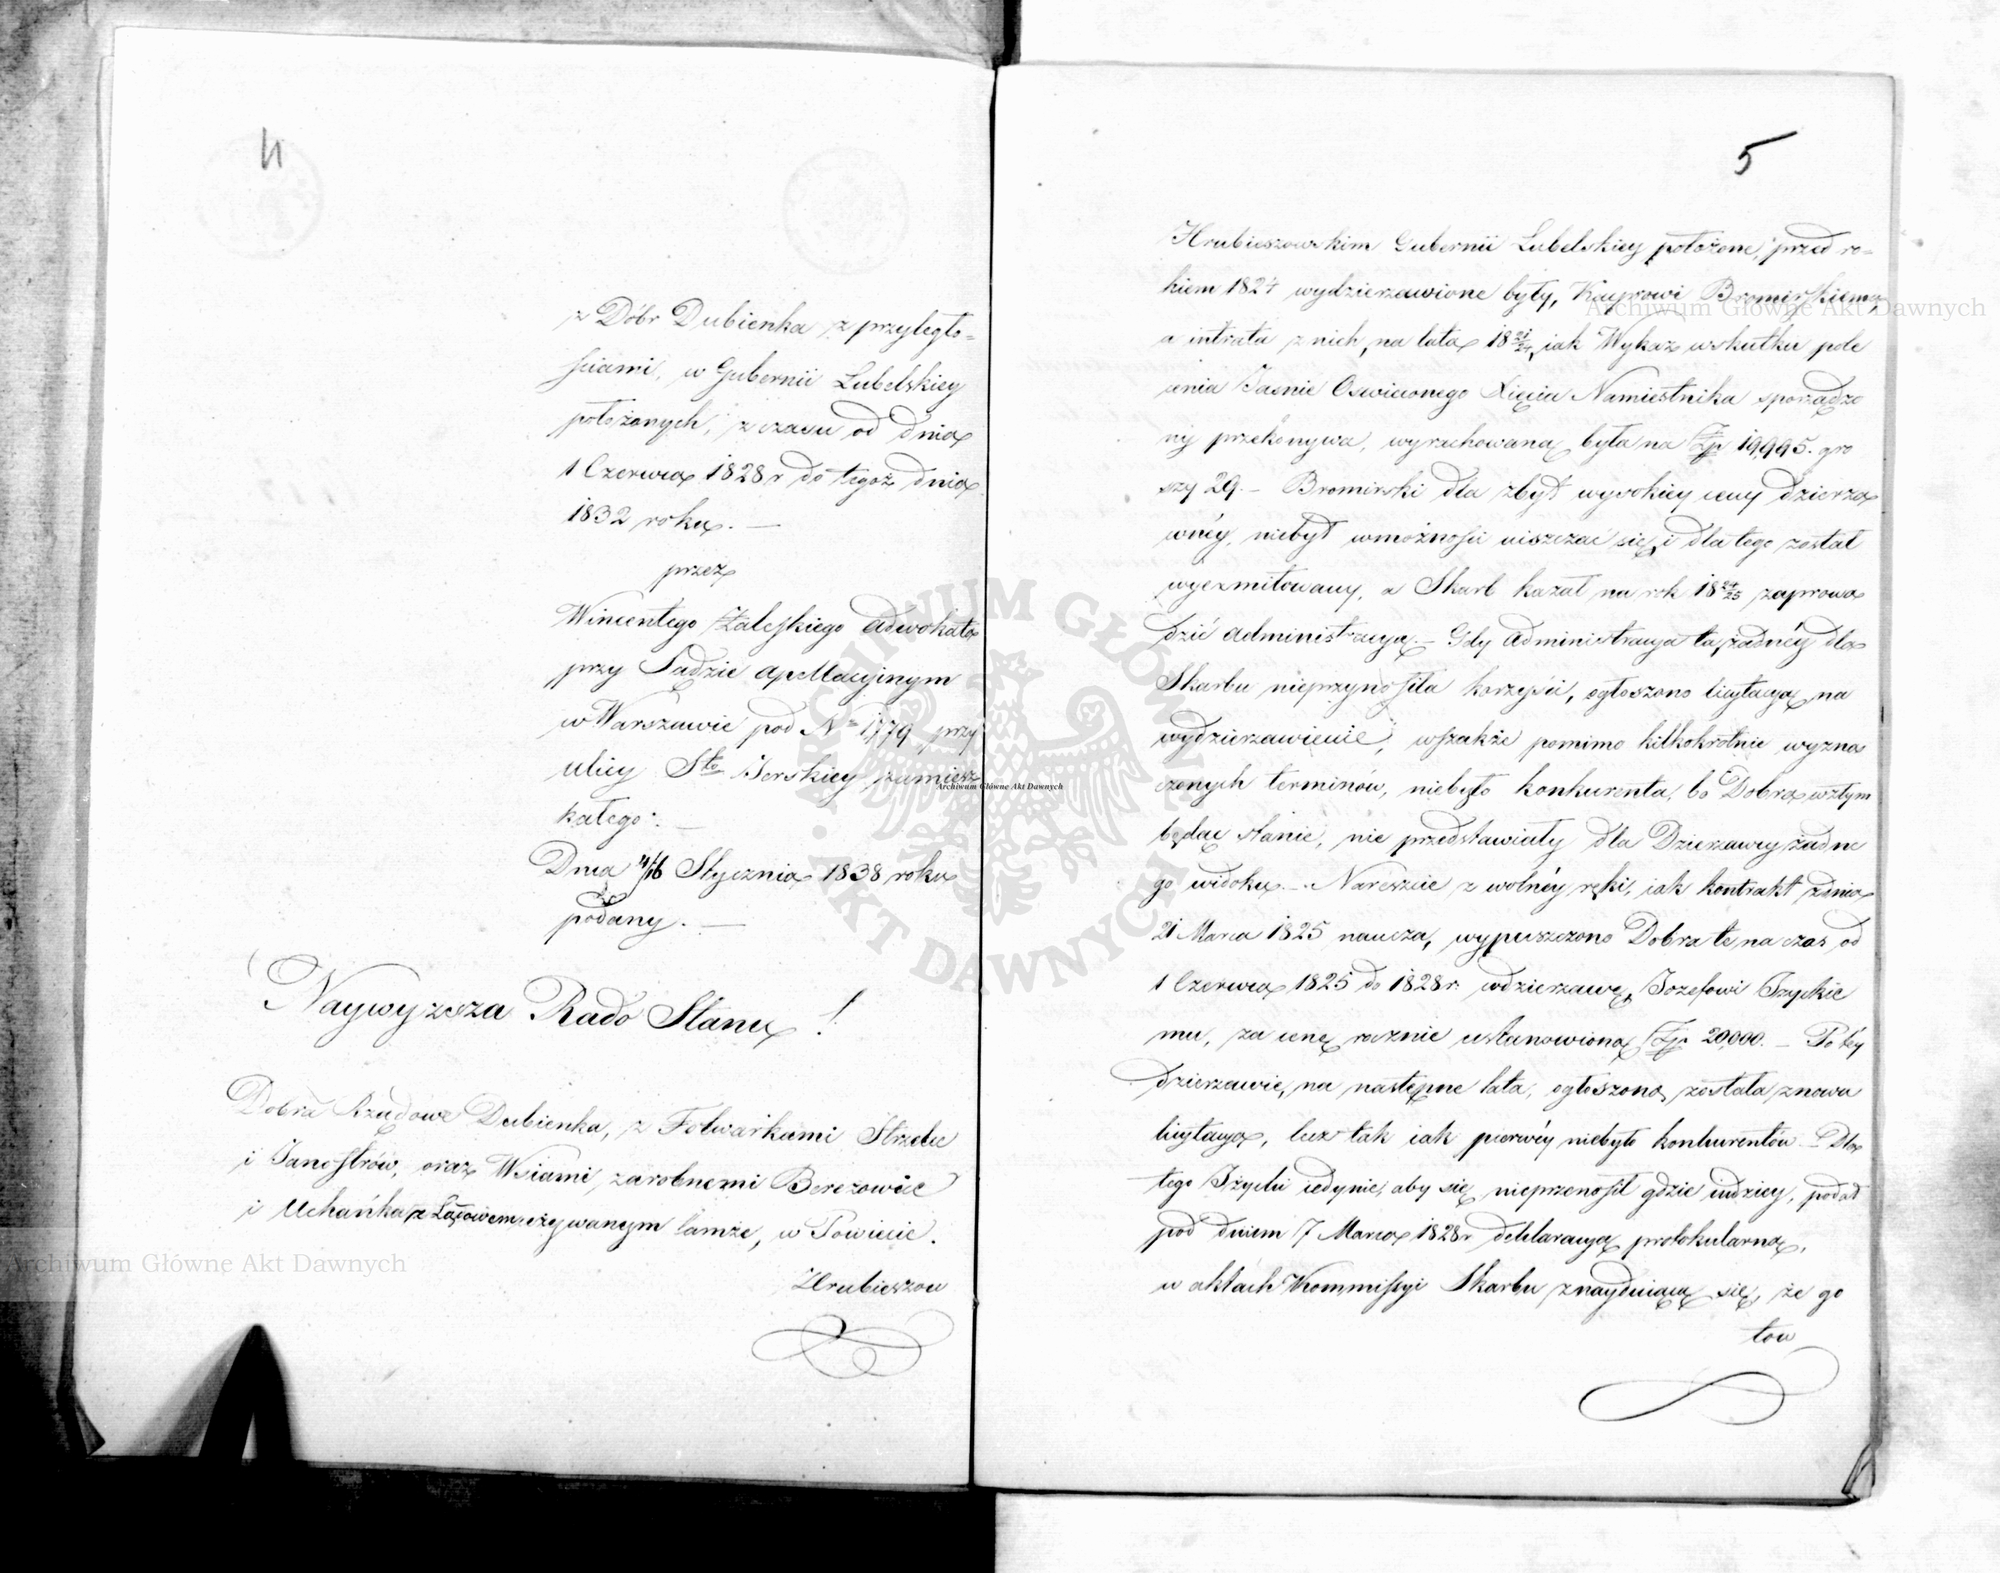 4
z Dóbr Dubienka z przyległo-
ściami, w Gubernii Lubelskiey
położonych, z czasu od dnia
1 Czerwca 1828 r do tegoż dnia
1832 roku. —
przez
Wincentego Zaleskiego Adwokata
przy Sądzie Apellacyinym
w Warszawie pod No 1779 przy
ulicy Sto Jerskiey zamiesz
kałego. —
Dnia 4/16 Stycznia 1838 roku
podany. —
Naywyzsza Rado Stanu !
Dobra Rządowe Dubienka, z Folwarkami Strzelce
i Janostrów, oraz Wsiami zarobnemi Berezowiec
i Uchańka z Lasowem używanym tamże, w Powiecie.
Hrubieszow
5
Hrubieszowskim Gubernii Lubelskiey położone, przed ro-
kiem 1824 wydzierzawione były, Kayrowi Bromirskiemu
a intrata z nich, na lata 18 21/24, iak Wykaz wskutku pole
cenia Jasnie Oswieconego Xięcia Namiestnika sporządzo
ny przekonywa, wyrachowana była na Zp 19,995. gro
szy 29. — Bromirski dla zbyt wysokiey ceny dzierza
wnéy, niebył wmożności uiszczać się, i dla tego został
wyexmitowany, a Skarb kazał na rok 18 24/25 zaprowa
dzić administracyą. — Gdy Administracya ta, żadnéy dla
Skarbu nieprzynosiła korzyści, ogłoszono licytacyą na
wydzierzawienie, wszakże pomimo kilkokrotnie wyzna
czonych terminów, niebyło konkurenta, bo Dobra wztym
będąc stanie, nie przedstawiały dla Dzierzawcy żadne
go widoku. — Nareszcie z wolnéy ręki, iak kontrakt zdnia
21 Marca 1825 naucza, wypuszczono Dobra te na czas od
1 Czerwca 1825 do 1828 r. wdzierzawę, Jozefowi Iżyckie
mu, za cenę rocznie ustanowioną Zp 20,000. — Po téy
dzierzawie, na następne lata, ogłoszona została znowu
licytacya, lecz tak iak pierwéy niebyło konkurentów — Dla
tego Iżycki iedynie, aby się nieprzenosił gdzie indziey, podał
pod dniem 7 Marca 1828 r deklaracyą protokularną,
w aktach Kommissyi Skarbu znayduiącą się, że go
tow
Archiwum Główne Akt Dawnych
Archiwum Główne Akt Dawnych
Archiwum Główne Akt Dawnych
ARCHIWUM GŁÓWNE
AKT DAWNYCH